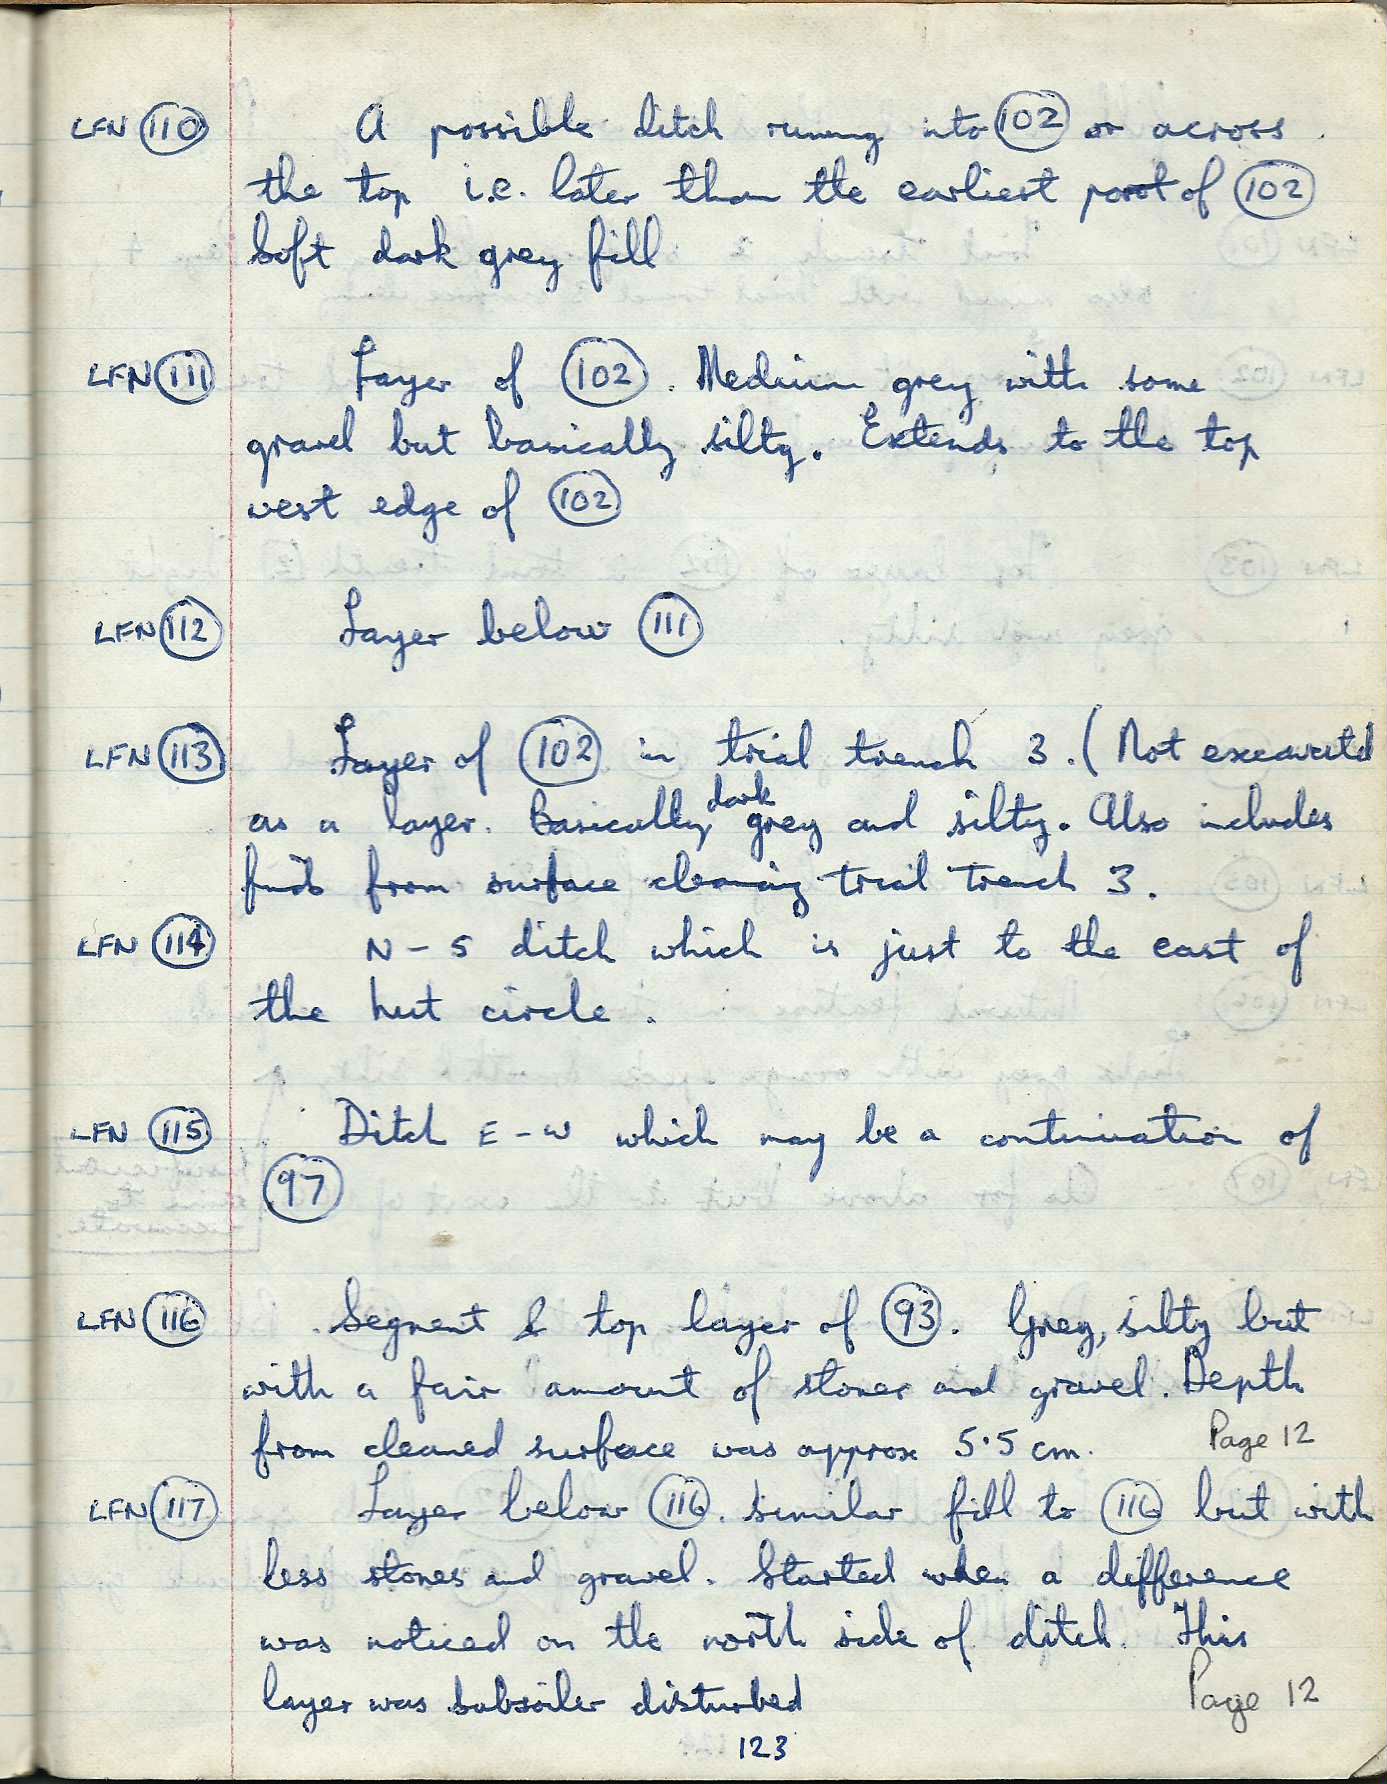 LFN 110 A possible ditch running into 102 or across
the top i.e. later than the earliest part of 102
Soft dark grey fill
LFN 111 Layer of 102. Medium grey with some
gravel but basically silty. Extends to the top
west edge of 102
LFN 112 Layer below 111
LFN 113 Layer of 102 in trial trench 3. (Not excavated
as a layer. Basically dark grey and silty. Also includes
finds from surface cleaning trial trench 3.
LFN 114 N-S ditch which is just to the east of
the hut circle.
LFN 115 Ditch E-W which may be a continuation of
97
LFN 116 Segment & top layer of 93. Grey, silty but
with a fair amount of stones and gravel. Depth
from cleaned surface was approx 5.5 cm. Page 12
LFN 117 Layer below 116. Similar fill to 116 but with
less stones and gravel. Started when a difference
was noticed on the north side of ditch. This
layer was subsoiler disturbed Page 12
123